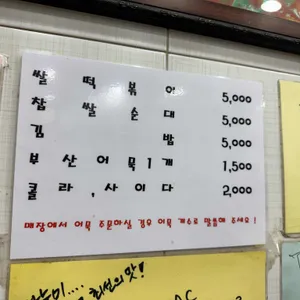 쌀 떡 볶 이 5,000
찹 쌀 순 대 5,000
김 밥 5,000
부 산 어 묵 1 개 1,500
콜 라 , 사 이 다 2,000
매장에서 어묵 주문하실 경우 어묵 개수로 말씀해 주세요!
최선의 맛!